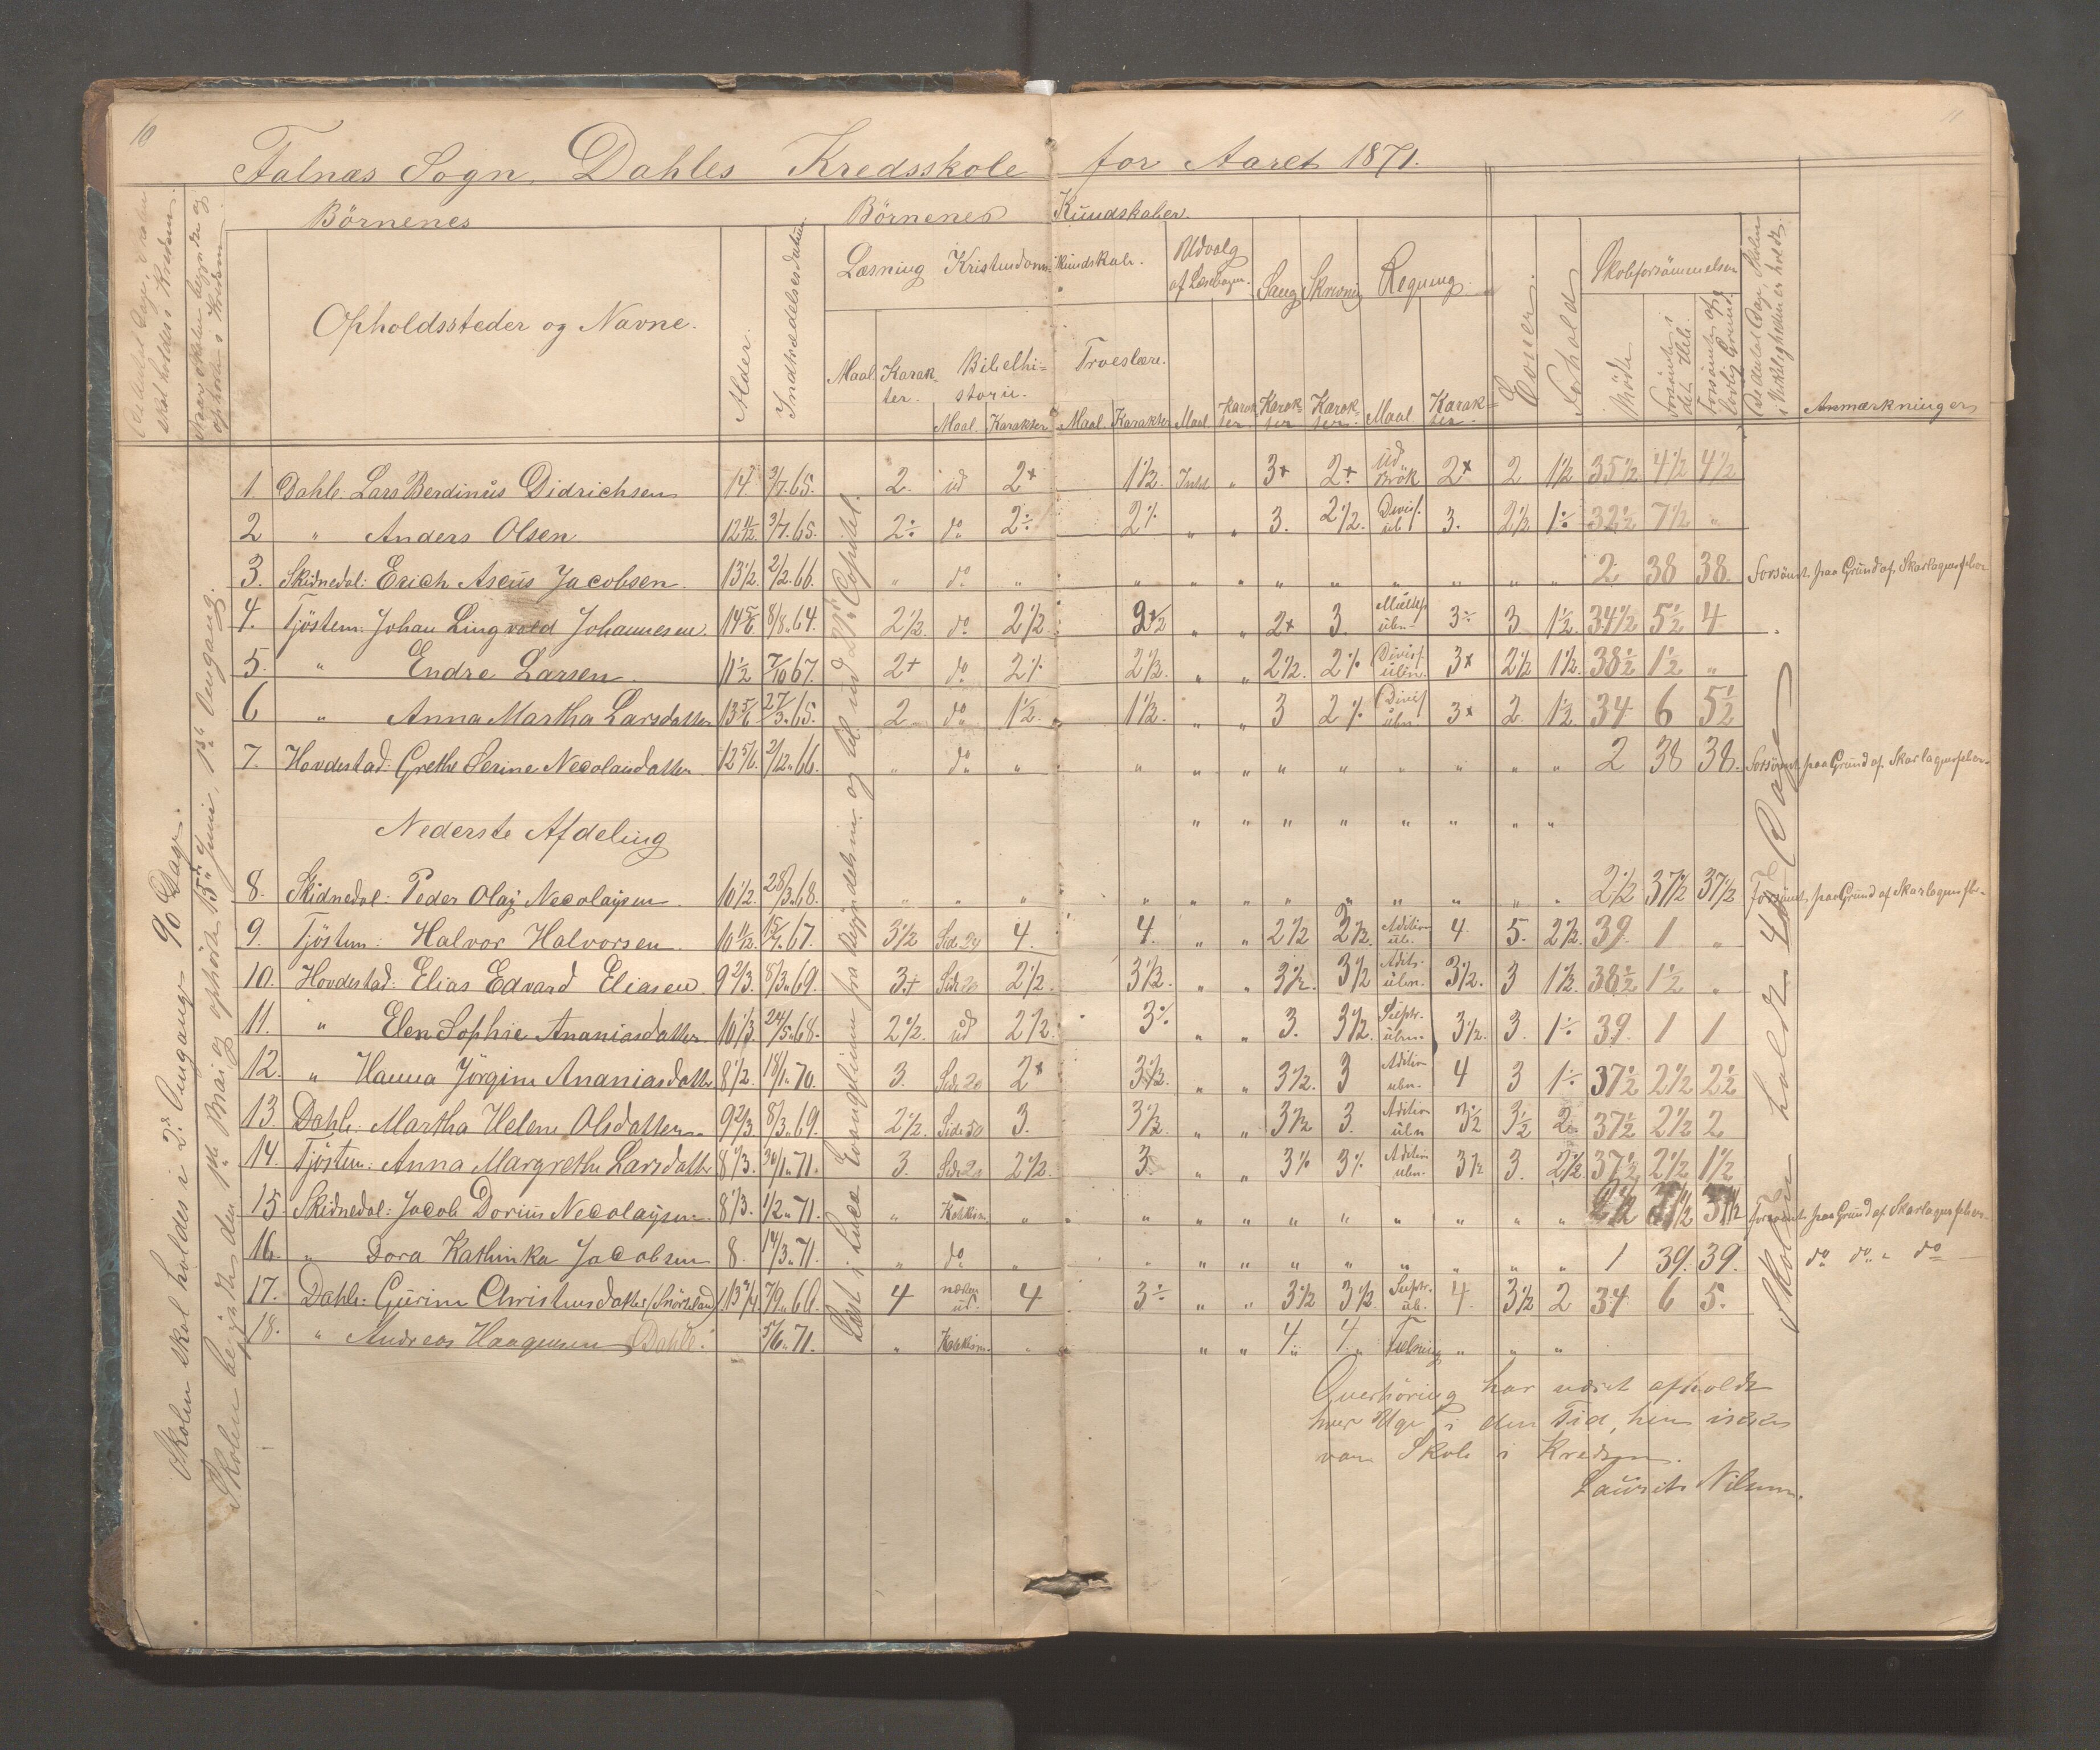 10
11
Falnæs Sogn, Dahles Kredsskole for Aaret 1871.
Börnenes Börnenes Kundskaber.
Opholdssteder og Navne. Alder. Indtrædelsesdatum Læsning Kristendoms kundskab. Udvalg af Læsebogen. Sang Skrivning Regning. Evner. Forhold Skoleforsömmelser Anmærkninger
Maal. Karakter. Bibelhistorie. Troeslære. Mödte
Maal. Karakter Maal. Karakter Maal Karakter Karakter Karakter Maal Karakter
1. Dahle: Lars Berdinus Didrichsen 14 3/7.65. 2. ud 2+ 1½. 3+ 2+ ud Brök 2+ 2 1½ 35½ 4½ 4½
2 " Anders Olsen 12 11/12. 3/7.65. 2÷ do 2÷ 2÷ " " 3. 2½. Divis. ub. 3. 2½ 1÷ 32½ 7½ "
3. Skidnedal: Erich Aseus Jacobsen. 13½. 2/2.66. " do " " " " " " " " " " 2 38 38. Forsömt paa Grund af Skarlagensfeber
4. Tjöstem: Johan Lingvald Johannesen. 14 5/6 8/8.64. 2½. do 2½. 2½ " " 2+ 3. ubn. 3÷ 3 1½. 34½ 5½ 4
5. " Endre Larsen. 11½ 7/10 67. 2+ do 2÷ 2½. " " 2½. 2÷ Divis. ubn. 3+ 2½ 1½. 38½ 1½ "
6 " Anna Martha Larsdatter 13 5/6 27/3.65. 2 do 1½. 1½. " " 3 2÷ Divis ubn. 3+ 2 1½ 34 6 5½
7. Hovdestad: Grethe Serine Necolaudatter. 12 5/6. 2/12.66. " do " " " " " " " " " " 2 38 38. Forsömt paa Grund af Skarlagensfeber.
Nederste Afdeling
8. Skidnedal: Peder Olaj Necolaysen. 10½. 28/3.68. " " " " " " " " " " " " 2½ 37½ 37½ Forsömt paa Grund af Skarlagensfbr.
9. Tjöstem: Halvor Halvorsen. 10 11/12. 15/4.67. 3½ Side 24 4. 4. " " 2½ 2½. Adition ub. 4. 5. 2½. 39. 1 "
10. Hovdestad: Elias Edvard Eliasen. 9 2/3. 8/3.69. 3+ Side 20 2½. 3½. " " 3½. 3½ Adit. ubn. 3½. 3 1½. 38½ 1½ "
11. " Elen Sophie Ananiasdatter. 10 1/3. 24/5.68. 2½. ud 2½. 3÷ " " 3. 3½ Subtr. ubn. 3½. 3. 1÷ 39. 1 1
12. " Hanna Jörgine Ananiasdatter 8½. 18/1.70. 3. Side 20 2+ 3½. " " 3½. 3 Adition ubn. 4 3 1÷ 37½ 2½ 2½
13. Dahle: Martha Helene Olsdatter. 9 2/3 8/3.69. 2½. Side 50 3. 3½. " " 3½ 3. Adition ubn 3½ 3½ 2 37½ 2½ 2
14. Tjöstem: Anna Margrethe Larsdatter 8 1/3. 30/1.71. 3. Side 20 2½. 3. " " 3÷ 3÷ Adition ubn. 3½ 3. 2½. 37½ 2½ 1½
15. Skidnedal: Jacob Dorius Necolaysen. 8 1/3. 1/2.71. " Katekism. " " " " " " " " " " 2½ 37½ 37½ Forsömt paa Grund af Skarlagensfeber.
16. " Dora Kathinka Jacobsen 8. 14/3.71. " do " " " " " " " " " " 1 39. 39. do do do
17. Dahle: Gurine Christensdatter 13 3/4. 7/9.66. 4 næsten ud. 4 3÷ " " 3½ 3½ Subtr. ub. 4. 3½ 2 34 6 5.
18. " Andreas Haagensen Dahle. 5/6.71. " Katekism. " " " 4. 4. " " "
Overhöring har været afholdt
hver Uge i den Tid, her ikke
var Skole i Kredsen.
Laurits Nilsen.
Skolen skal holdes i 2de Omgange 90 Dage.
Skolen begyndte den 1ste Mai og ophörte 15de Juni, 1ste Omgang.
Læst i Lucæ Evangelium fra Begyndelsen og til ud Capitel.
Skolen holdt 40 Dage